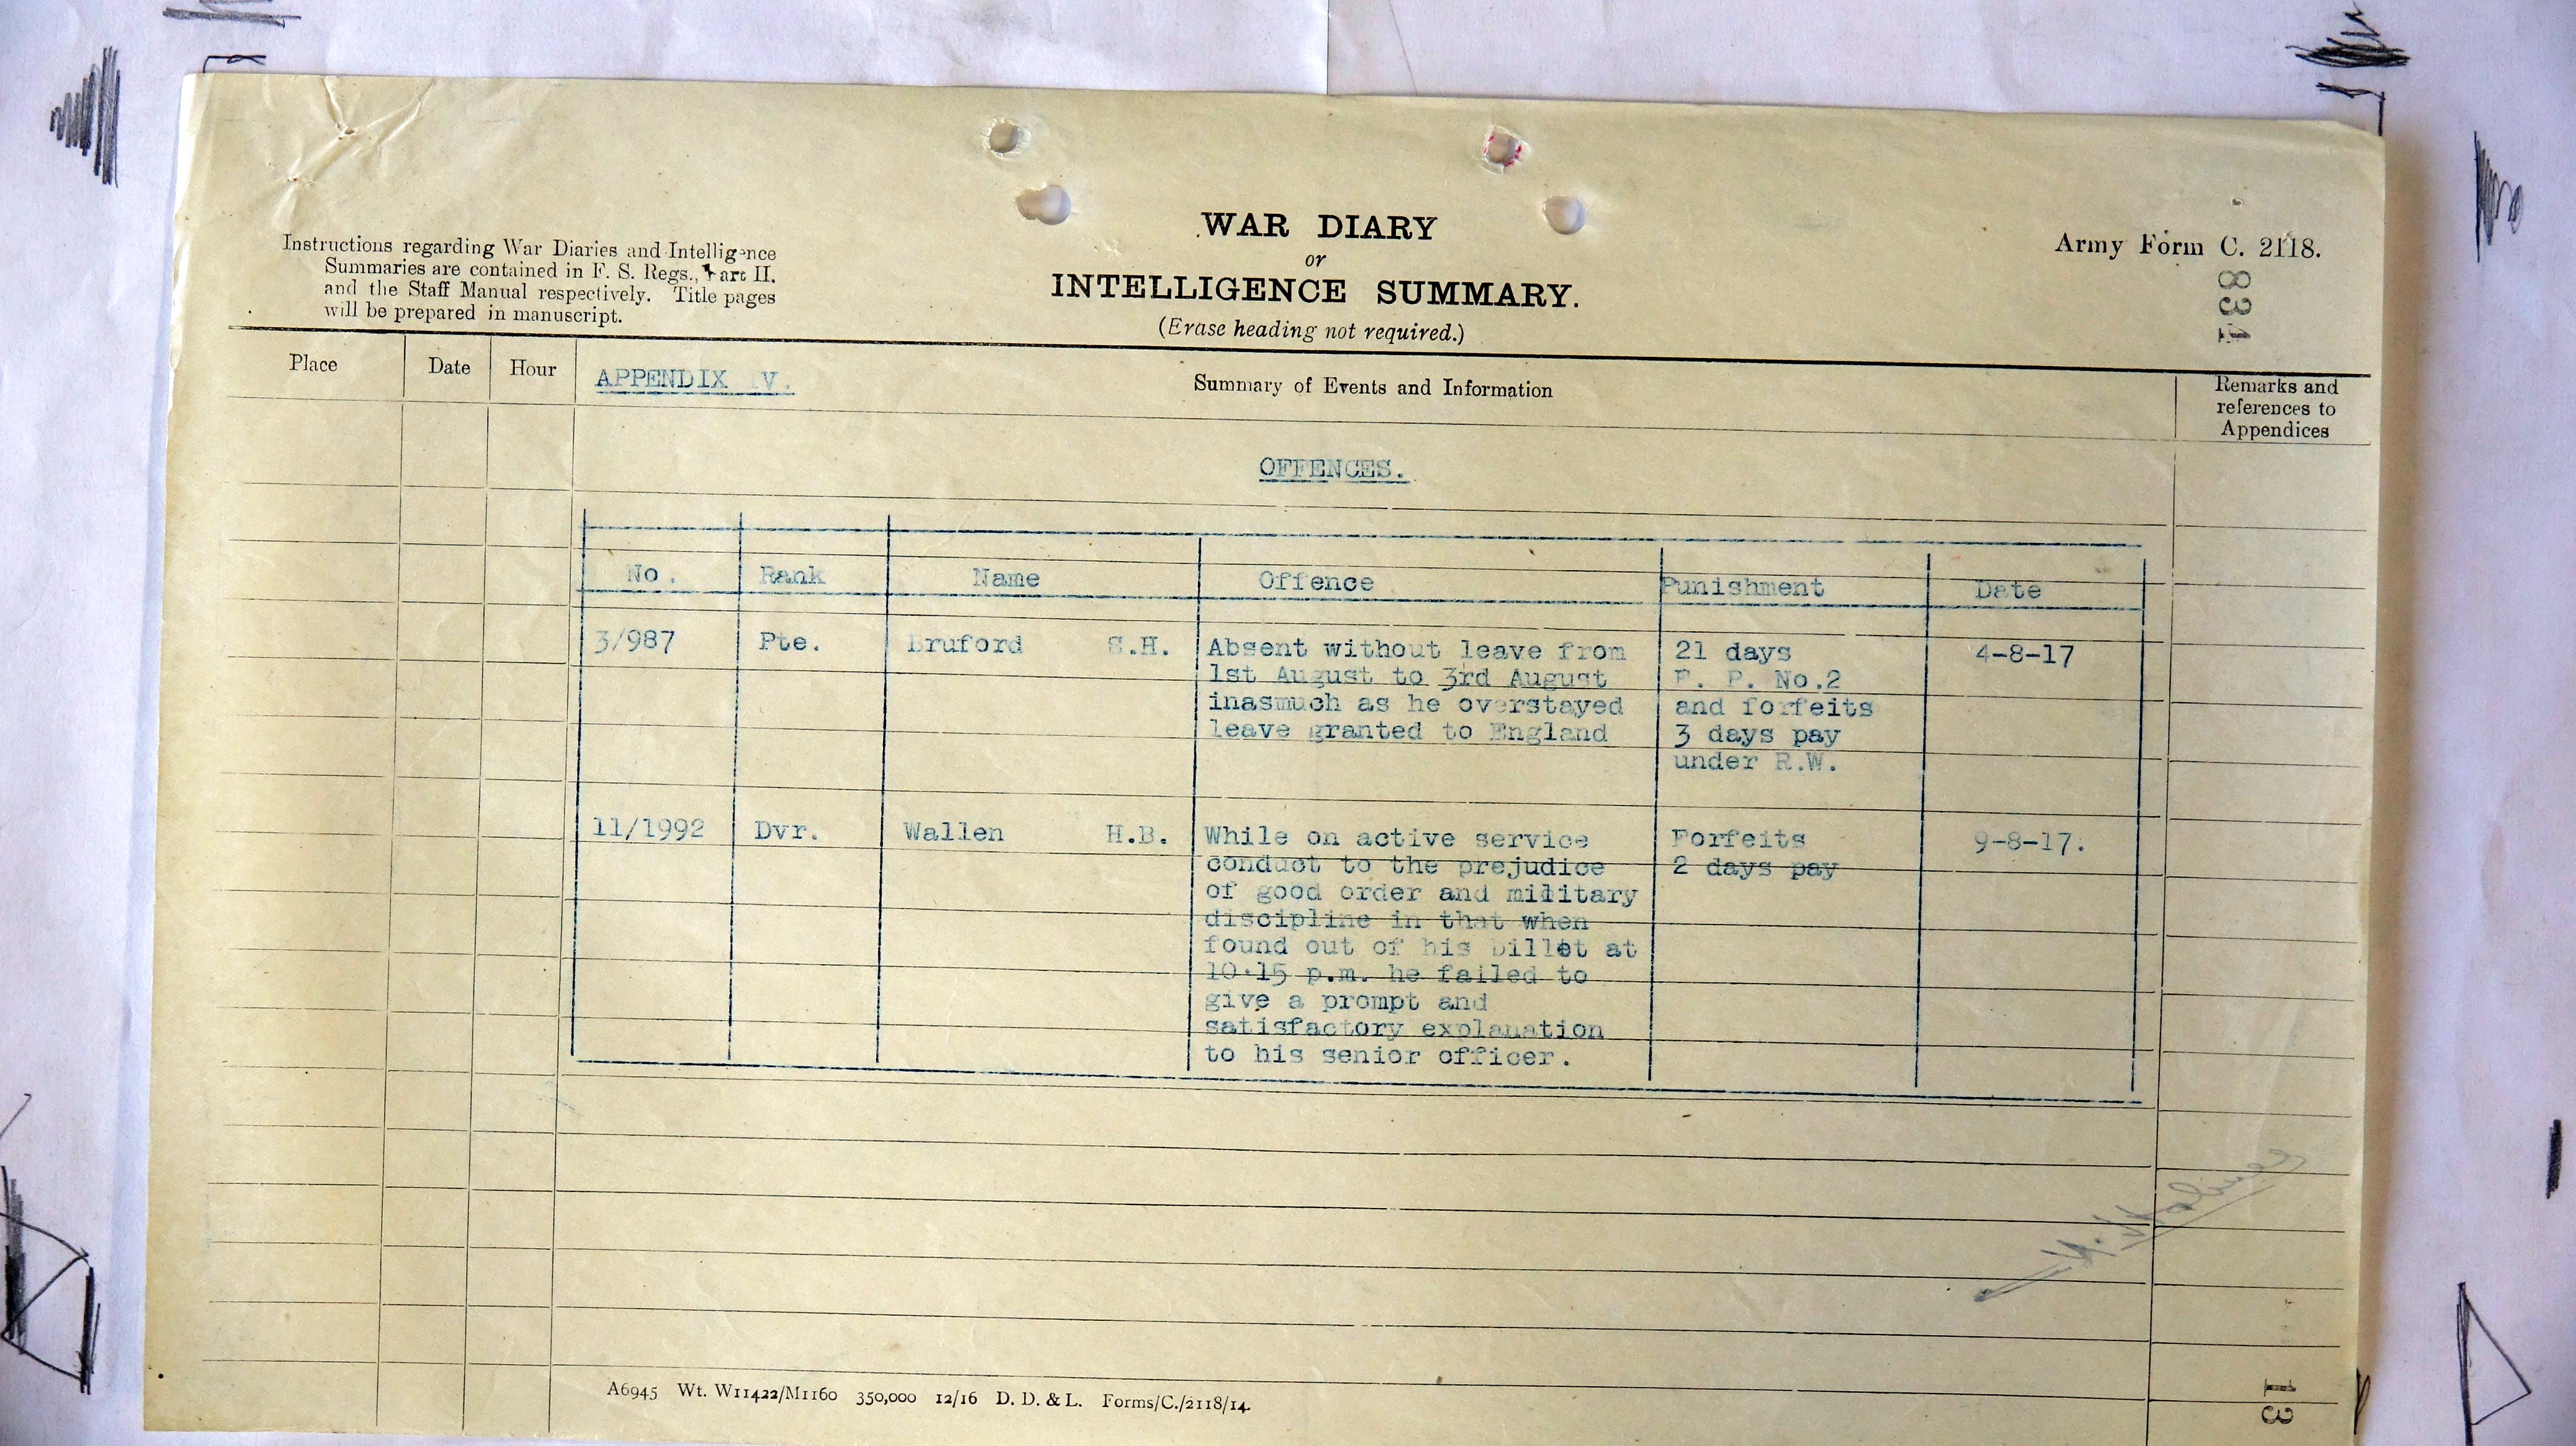 Instructions regarding War Diaries and Intelligence
Summaries are contained in F. S. Regs., Part II.
and the Staff Manual respectively. Title pages
will be prepared in manuscript.
WAR DIARY
or
INTELLIGENCE SUMMARY.
(Erase heading not required.)
Army Form C. 2118.
831
Place Date Hour APPENDIX IV. Summary of Events and Information Remarks and
references to
Appendices
OFFENCES.
No. Rank Name Offence Punishment Date
3/987 Pte. Bruford S.H. Absent without leave from 21 days 4-8-17
1st August to 3rd August F. P. No.2
inasmuch as he overstayed and forfeits
leave granted to England 3 days pay
under R.W.
11/1992 Dvr. Wallen H.B. While on active service Forfeits 9-8-17.
conduct to the prejudice 2 days pay
of good order and military
discipline in that when
found out of his billet at
10.15 p.m. he failed to
give a prompt and
satisfactory explanation
to his senior officer.
A6945 Wt. W11422/M1160 350,000 12/16 D. D. & L. Forms/C./2118/14.
13